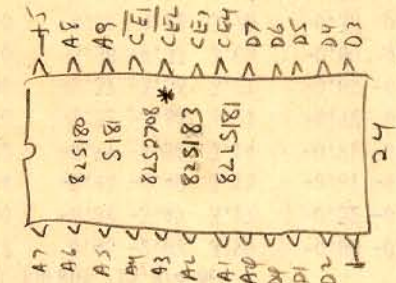 +5
A8
A9
CE1
CE2
CE3
CE4
D7
D6
D5
D4
D3
82S180
S181
82S2708 *
82S183
82LS181
24
A7
A6
A5
A4
A3
A2
A1
A0
D0
D1
D2